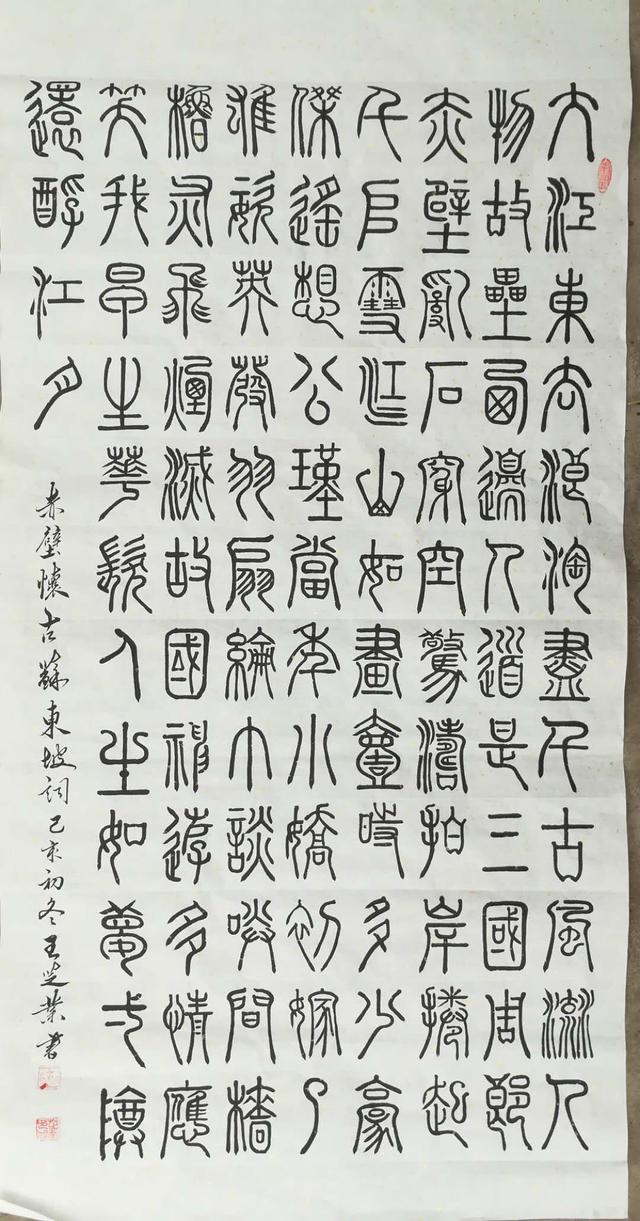 大江東去浪淘盡千古風流人
物故壘西邊人道是三國周郎
赤壁亂石穿空驚濤拍岸捲起
千堆雪江山如畫壹時多少豪
傑遙想公瑾當年小嬌初嫁了
雄姿英發羽扇綸巾談笑間檣
櫓灰飛煙滅故國神遊多情應
笑我早生華髮人生如夢弌樽
還酹江月
赤壁懷古蘇東坡詞己亥初冬王芝業書